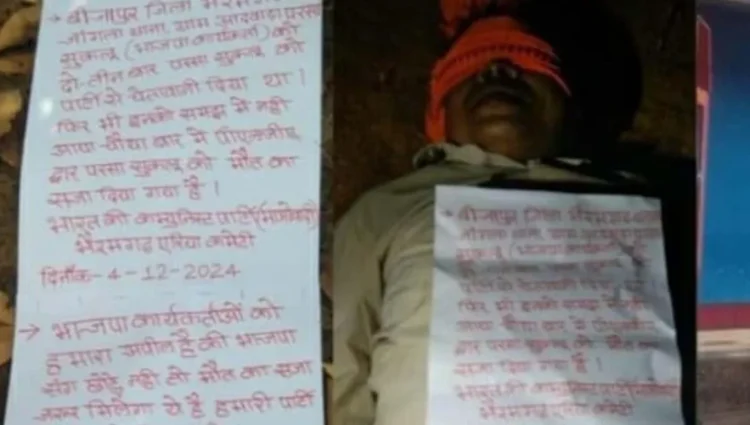 → बीजापुर जिला
जांगला थाना, ग्राम आदवाडा परसा
सुकलू (भाजपा कार्यकर्ता) को
दो-तीन बार परसा सुकलू को
पार्टी से चेतावनी दिया था।
फिर भी इनको समझ मे नही
आया चौथा बार में पीएलजीए
द्वार परसा सुकलू को मौत का
सजा दिया गया है।
भारत की कम्युनिस्ट पार्टी (माओवादी)
भैरमगढ एरिया कमेटी
दिनाँक-4-12-2024
→ भाजपा कार्यकर्ताओं को
हमारा अपील है की भाजपा
संग छोड़े नही तो मौत का सजा
जरूर मिलेगा ये है हमारी पार्टी
बीजापुर जिला भैरमगढ
जांगला थाना, ग्राम
सुकलू (भाजपा
पार्टी से चेतावनी दिया था।
फिर भी इनको समझ
आया चौथा बार में
द्वार परसा सुकलू को मौत का
सजा दिया गया है।
भारत की कम्युनिस्ट पार्टी (माओवादी)
भैरमगढ एरिया कमेटी